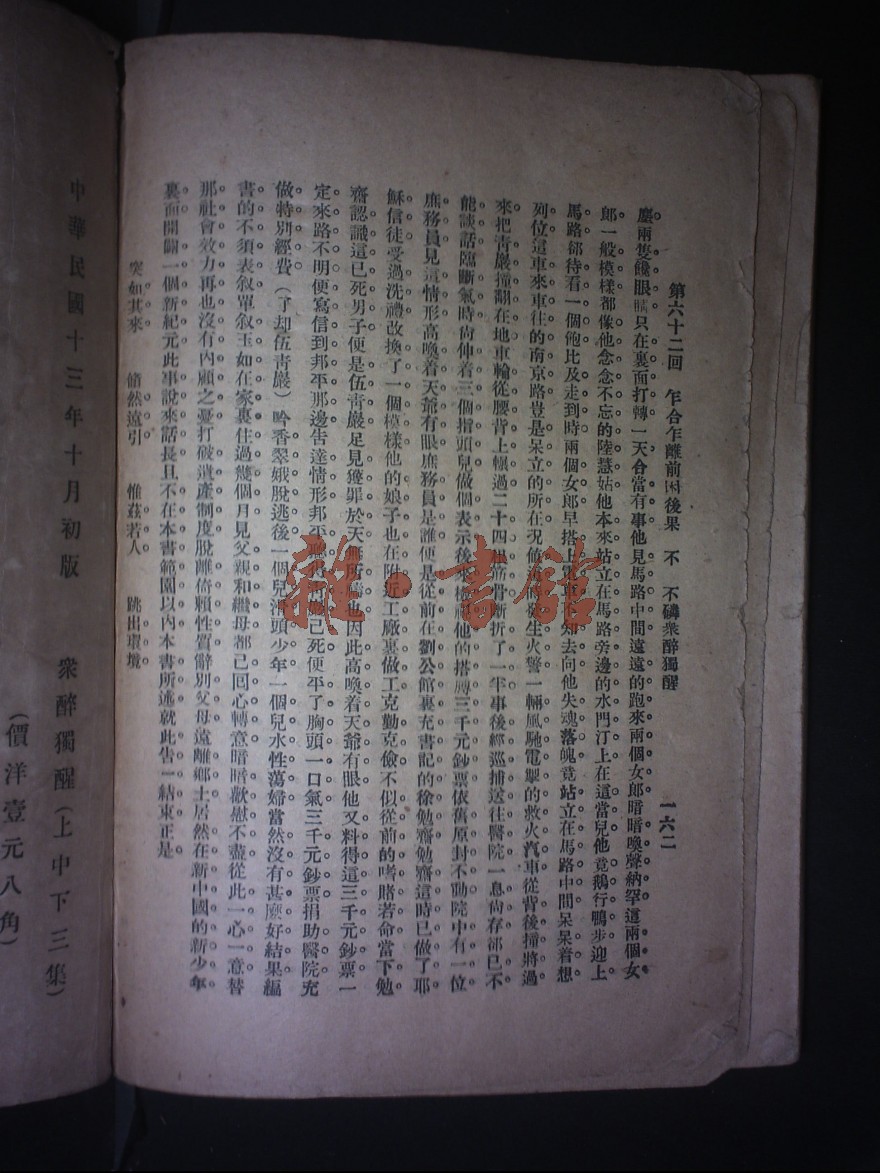 第六十二回　乍合乍離前因後果　不　不磷衆醉獨醒　一六二
塵兩隻饞眼睛只在裏面打轉一天合當有事他見馬路中間遠遠的跑來兩個女郎暗暗喚聲納罕這兩個女
郎一般模樣都像他念念不忘的陸慧姑他本來站立在馬路旁邊的水門汀上在這當兒他竟鵝行鴨步迎上
馬路郤待看一個飽比及走到時兩個女郎早搭上電車不知去向他失魂落魄竟站立在馬路中間呆呆着想
列位這車來車往的南京路豈是呆立的所在況值發生火警一輛風馳電掣的救火汽車從背後撞將過
來把靑巖撞翻在地車輪從腰背上輾過二十四根筋骨斷折了一半事後經巡捕送往醫院一息尙存郤已不
能談話臨斷氣時尙伸着三個指頭兒做個表示後來檢視他的搭膊三千元鈔票依舊原封不動院中有一位
庶務員見這情形高喚着天爺有眼庶務員是誰便是從前在劉公館裏充書記的徐勉齋勉齋這時已做了耶
穌信徒受過洗禮改換了一個模樣他的娘子也在附近工廠裏做工克勤克儉不似從前的嗜賭若命當下勉
齋認識這已死男子便是伍靑巖足見獲罪於天無所禱也因此高喚着天爺有眼他又料得這三千元鈔票一
定來路不明便寫信到邦平那邊吿達情形邦平聽得靑巖已死便平了胸頭一口氣三千元鈔票捐助醫院充
做特別經費（了却伍靑巖）吟香翠娥脫逃後一個兒滑頭少年一個兒水性蕩婦當然沒有甚麼好結果編
書的不須表敍單敍玉如在家裏住過幾個月見父親和繼母都已囘心轉意暗暗歡慰不盡從此一心一意替
那社會效力再也沒有內顧之憂打破遺產制度脫離倚賴性質辭別父母遠離鄉土居然在新中國的新少年
裏面開闢一個新紀元此事說來話長且不在本書範圍以內本書所述就此吿一結束正是
突如其來　翛然遠引　惟茲若人　跳出環境
衆醉獨醒（上中下三集）
（價洋壹元八角）
中華民國十三年十月初版
雜·書館